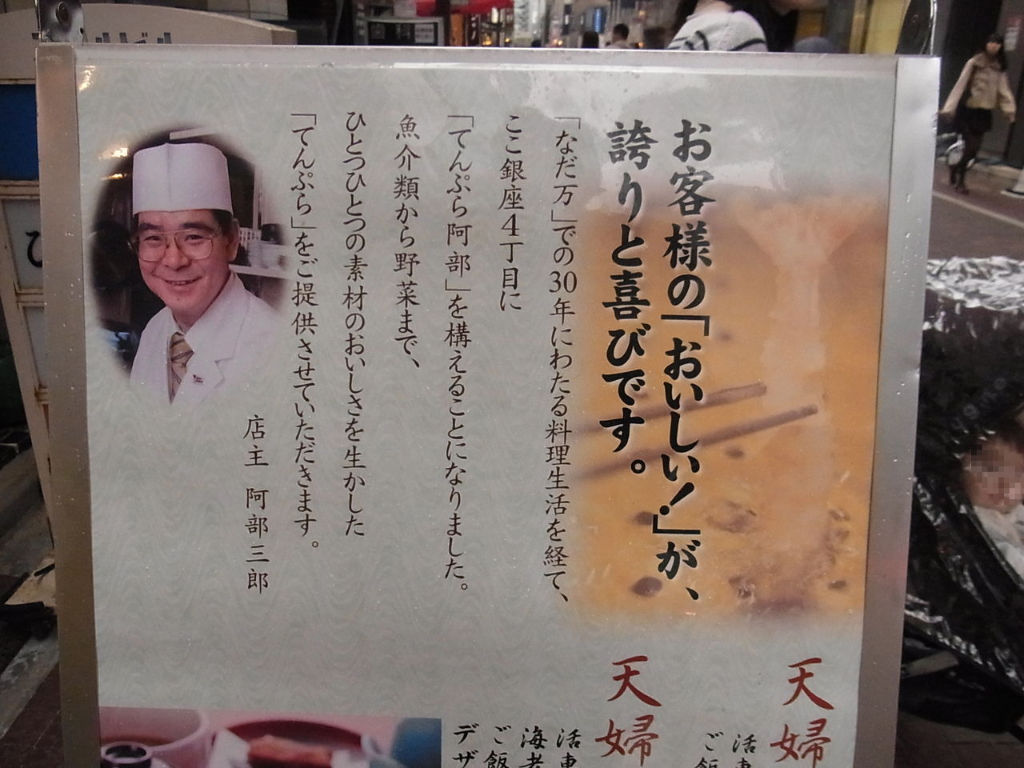 お客様の「おいしい!」が、
誇りと喜びです。
「なだ万」での30年にわたる料理生活を経て、
ここ銀座4丁目に
「てんぷら阿部」を構えることになりました。
魚介類から野菜まで、
ひとつひとつの素材のおいしさを生かした
「てんぷら」をご提供させていただきます。
店主 阿部三郎
天婦
活車
ご飯
天婦
活車
海老
ご飯
デザ